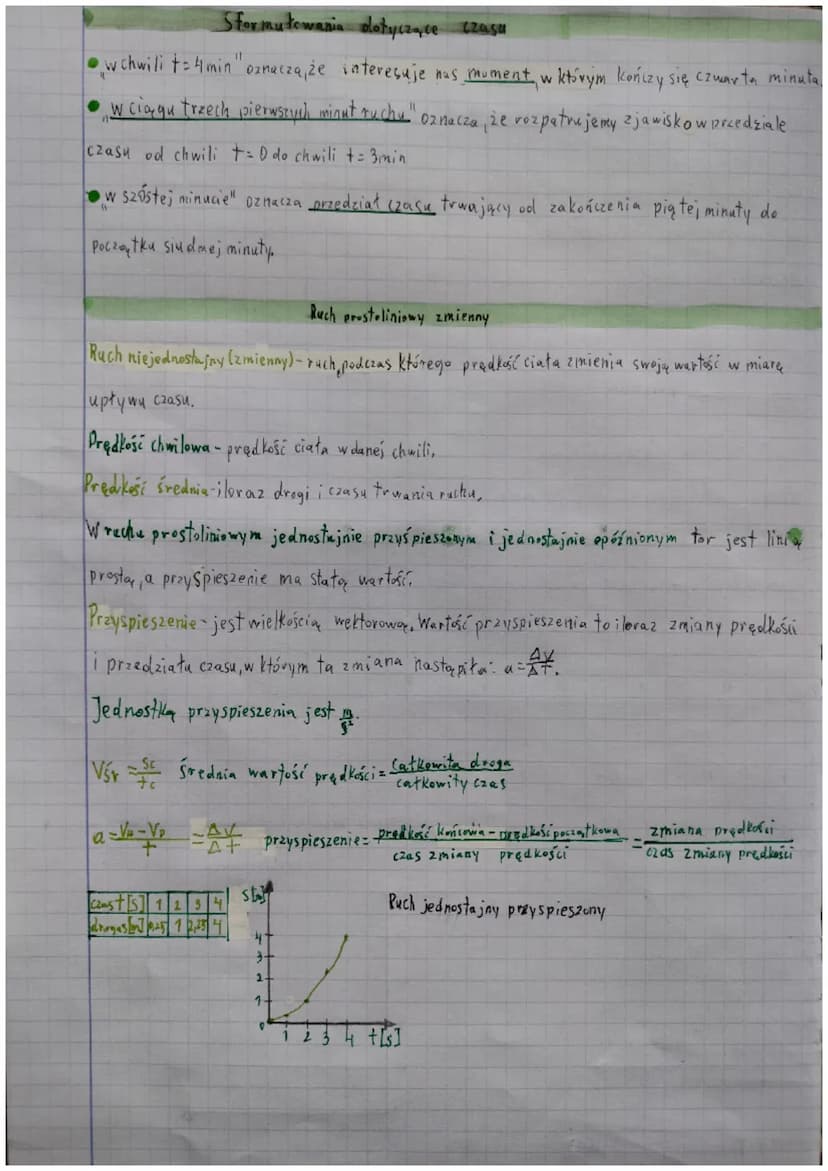 Sformułowania dotyczące czasu
• "w chwili t=4min" oznacza,że interesuje nas moment, w którym kończy się czwarta minuta.
• "w ciągu trzech pierwszych minut ruchu" oznacza, że rozpatrujemy zjawisko w przedziale
czasu od chwili t=0 do chwili t=3min
• "w szóstej minucie" oznacza przedział czasu trwający od zakończenia piątej minuty do
początku siudmej minuty.
Ruch prostoliniowy zmienny
Ruch niejednostajny (zmienny) - ruch, podczas którego prędkość ciała zmienia swoją wartość w miarę
upływu czasu.
Prędkość chwilowa - prędkość ciała w danej chwili.
Prędkość średnia - iloraz drogi i czasu trwania ruchu.
W ruchu prostoliniowym jednostajnie przyśpieszonym i jednostajnie opóźnionym tor jest linią
prostą, a przyspieszenie ma stałą wartość.
Przyspieszenie - jest wielkością wektorową. Wartość przyspieszenia to iloraz zmiany prędkości
i przedziału czasu, w którym ta zmiana nastąpiła: a = ΔV/Δt.
Jednostką przyspieszenia jest m/s².
Vśr = Sc/tc średnia wartość prędkości = całkowita droga/całkowity czas
a = Vk - Vp/t = ΔV/Δt przyspieszenie = prędkość końcowa - prędkość początkowa/czas zmiany prędkości = zmiana prędkości/czas zmiany prędkości
czas t[s] 1 2 3 4
droga s[m] 0,25 1 2,25 4
S[m]
Ruch jednostajny przyspieszony
4
3
2
1
0
1 2 3 4 t[s]